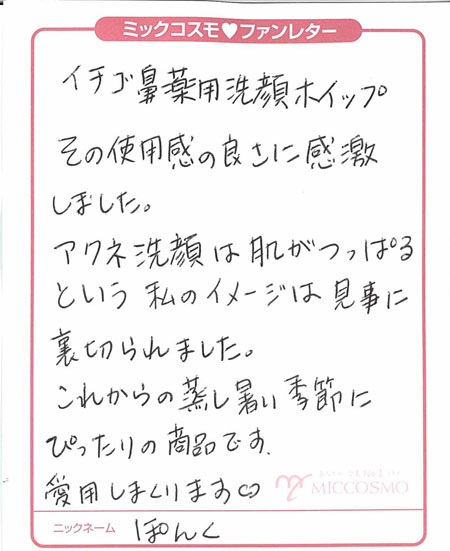 ミックコスモ♥ファンレター
イチゴ鼻薬用洗顔ホイップ
その使用感の良さに感激
しました。
アクネ洗顔は肌がつっぱる
という私のイメージは見事に
裏切られました。
これからの蒸し暑い季節に
ぴったりの商品です。
愛用しまくります♡
MICCOSMO
ニックネーム ぽんく